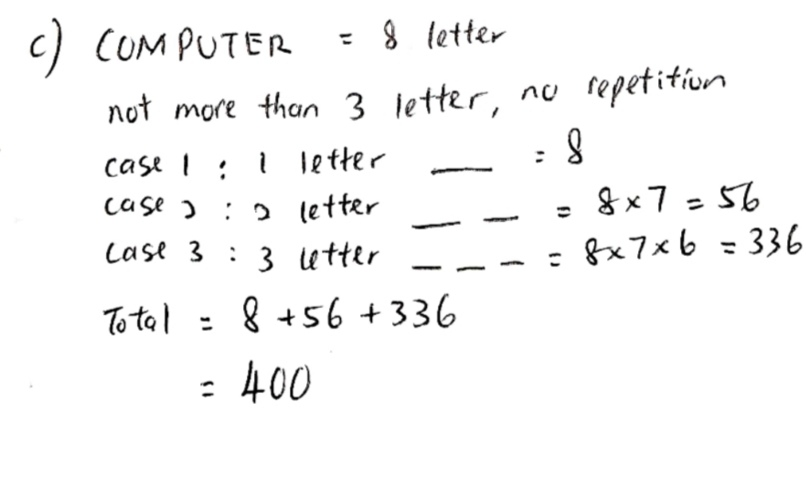 c) COMPUTER = 8 letter
not more than 3 letter, no repetition
case 1 : 1 letter __ = 8
case 2 : 2 letter __ __ = 8×7 = 56
case 3 : 3 letter __ __ __ = 8×7×6 = 336
Total = 8 + 56 + 336
= 400